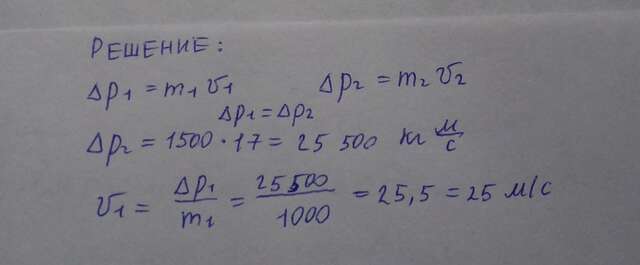 РЕШЕНИЕ:
Δp₁ = m₁ v₁ Δp₂ = m₂ v₂
Δp₁ = Δp₂
Δp₂ = 1500 · 17 = 25 500 кг м/с
v₁ = Δp₁/m₁ = 25 500/1000 = 25,5 = 25 м/с